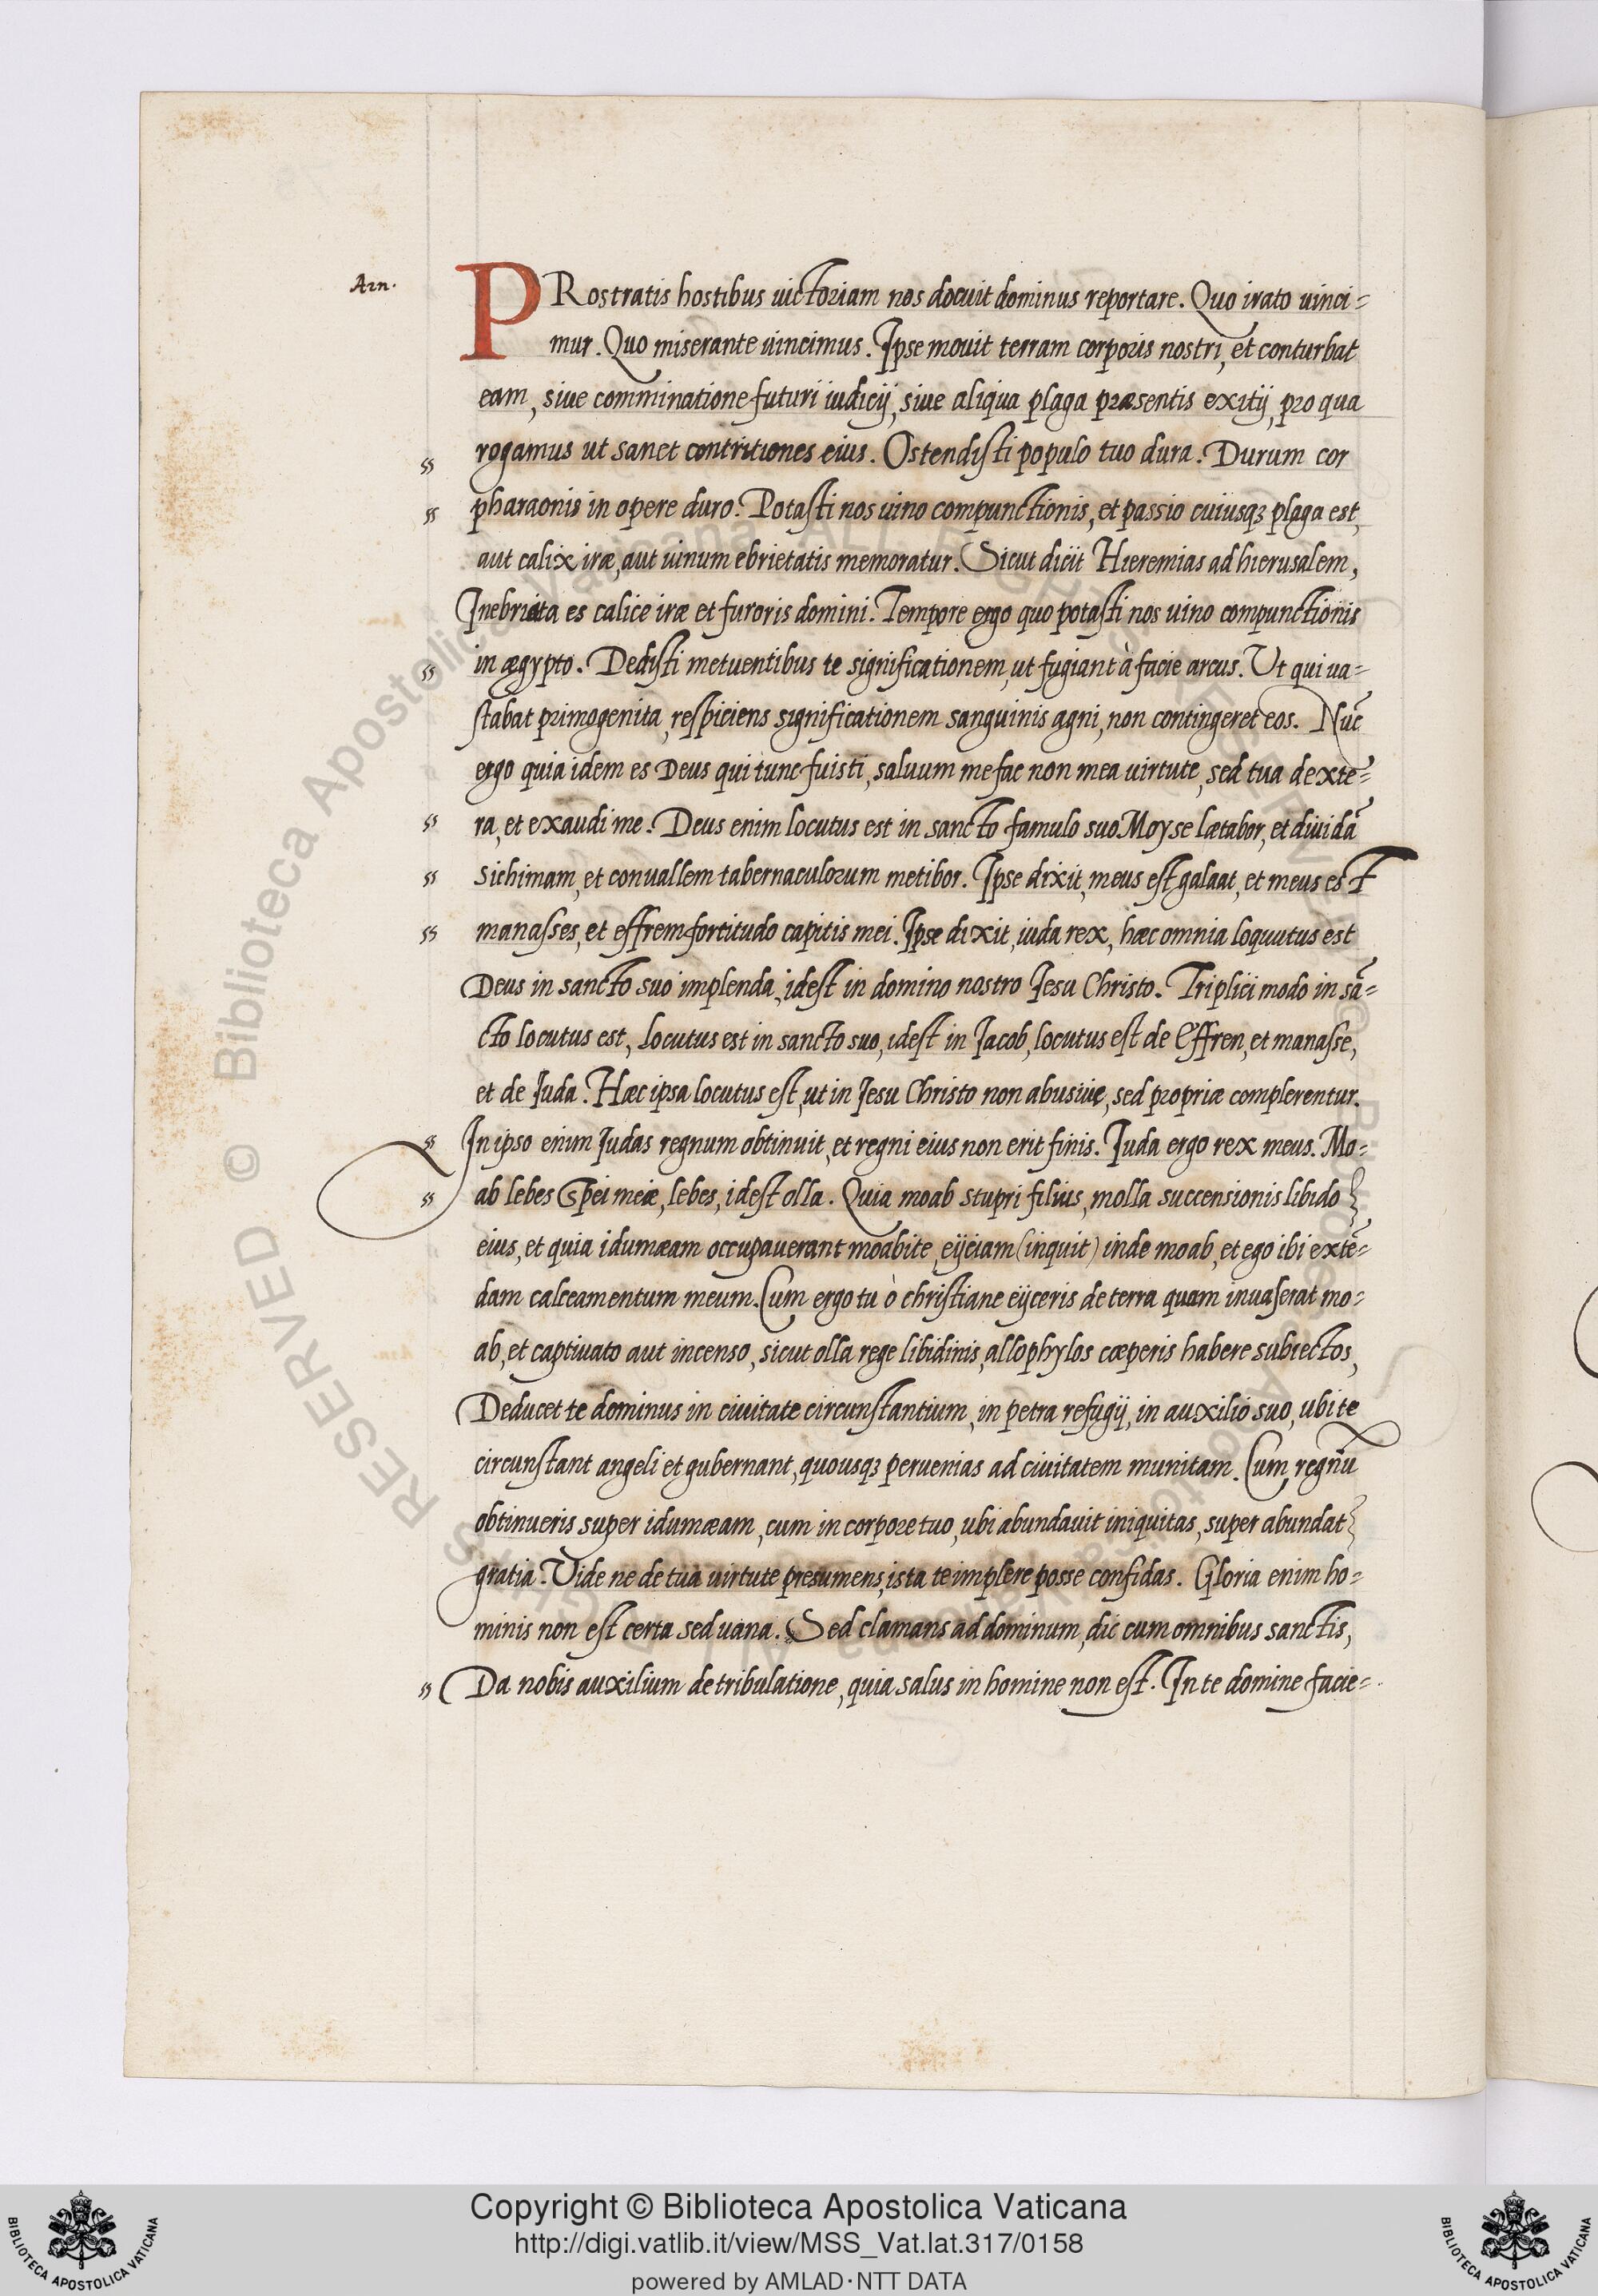 Arn.
PRostratis hostibus uictoriam nos docuit dominus reportare. Quo irato uinci=
mur. Quo miserante uincimus. Ipse mouit terram corporis nostri, et conturbat
eam, siue comminatione futuri iudicij, siue aliqua plaga præsentis exitij, pro qua
rogamus ut sanet contritiones eius. Ostendisti populo tuo dura. Durum cor
pharaonis in opere duro. Potasti nos uino compunctionis, et passio cuiusqꝫ plaga est,
aut calix iræ, aut uinum ebrietatis memoratur. Sicut dicit Hieremias ad hierusalem,
Inebriata es calice iræ et furoris domini. Tempore ergo quo potasti nos uino compunctionis
in ægypto. Dedisti metuentibus te significationem, ut fugiant à facie arcus. Ut qui ua=
stabat primogenita, respiciens significationem sanguinis agni, non contingeret eos. Nuc̄
ergo quia idem es Deus qui tunc fuisti, saluum me fac non mea uirtute, sed tua dexte=
ra, et exaudi me. Deus enim locutus est in sancto famulo suo. Moyse lætabor, et diuidā
sichimam, et conuallem tabernaculorum metibor. Ipse dixit, meus est galaat, et meus est
manasses, et effrem fortitudo capitis mei. Ipse dixit, iuda rex, hæc omnia loquutus est
Deus in sancto suo implenda, idest in domino nostro Jesu Christo. Triplici modo in sā=
cto locutus est, locutus est in sancto suo, idest in Jacob, locutus est de Effren, et manasse,
et de Iuda. Hæc ipsa locutus est, ut in Jesu Christo non abusiuę, sed propriæ complerentur.
In ipso enim Iudas regnum obtinuit, et regni eius non erit finis. Iuda ergo rex meus. Mo=
ab lebes Spei meæ, lebes, idest olla. Quia moab stupri filius, molla succensionis libido
eius, et quia idumæam occupauerant moabite, eijciam (inquit) inde moab, et ego ibi extē=
dam calceamentum meum. Cum ergo tu ò christiane eijceris de terra quam inuaserat mo=
ab, et captiuato aut incenso, sicut olla rege libidinis, allophylos cæperis habere subiectos,
Deducet te dominus in ciuitate circunstantium, in petra refugij, in auxilio suo, ubi te
circunstant angeli et gubernant, quousqꝫ peruenias ad ciuitatem munitam. Cum regnū
obtinueris super idumæam, cum in corpore tuo, ubi abundauit iniquitas, super abundat
gratia. Vide ne de tua uirtute presumens, ista te implere posse confidas. Gloria enim ho=
minis non est certa sed uana. Sed clamans ad dominum, dic cum omnibus sanctis,
Da nobis auxilium de tribulatione, quia salus in homine non est. In te domine facie=
Copyright © Biblioteca Apostolica Vaticana
http://digi.vatlib.it/view/MSS_Vat.lat.317/0158
powered by AMLAD·NTT DATA